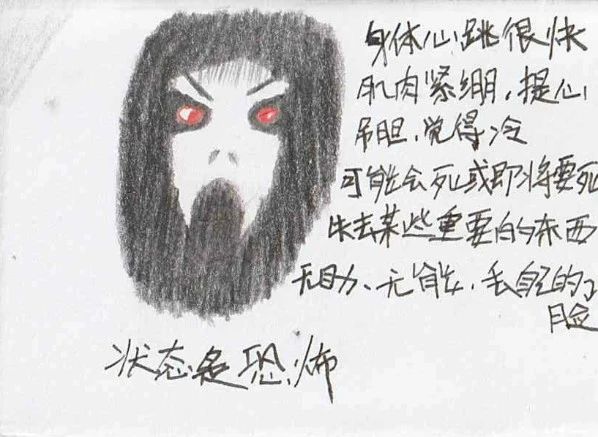 身体心跳很快
肌肉紧绷，提心
吊胆，觉得冷
可能会死或即将要死
失去某些重要的东西
无助、无能，丢自己的
脸
状态是恐怖